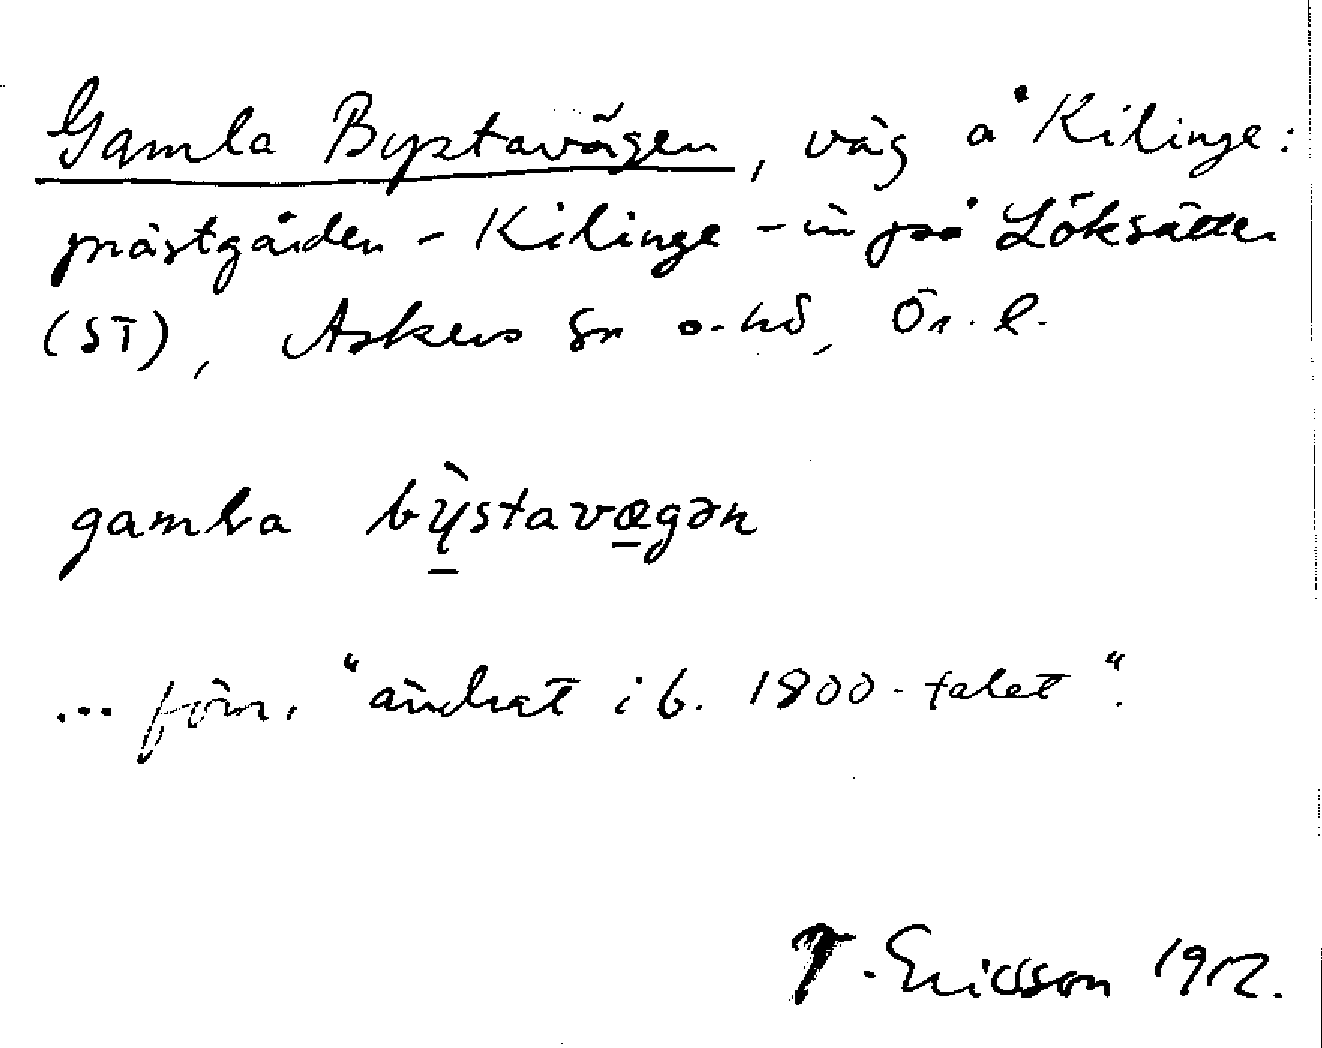 Gamla Bystavägen, väg å Kilinge:
prästgården - Kilinge - in på Löksätter
(ST), Askers sn o. hd, Ör. l.
gamla bỳstavægən
... förn, "ändrat i b. 1800-talet".
T. Ericsson 1912.